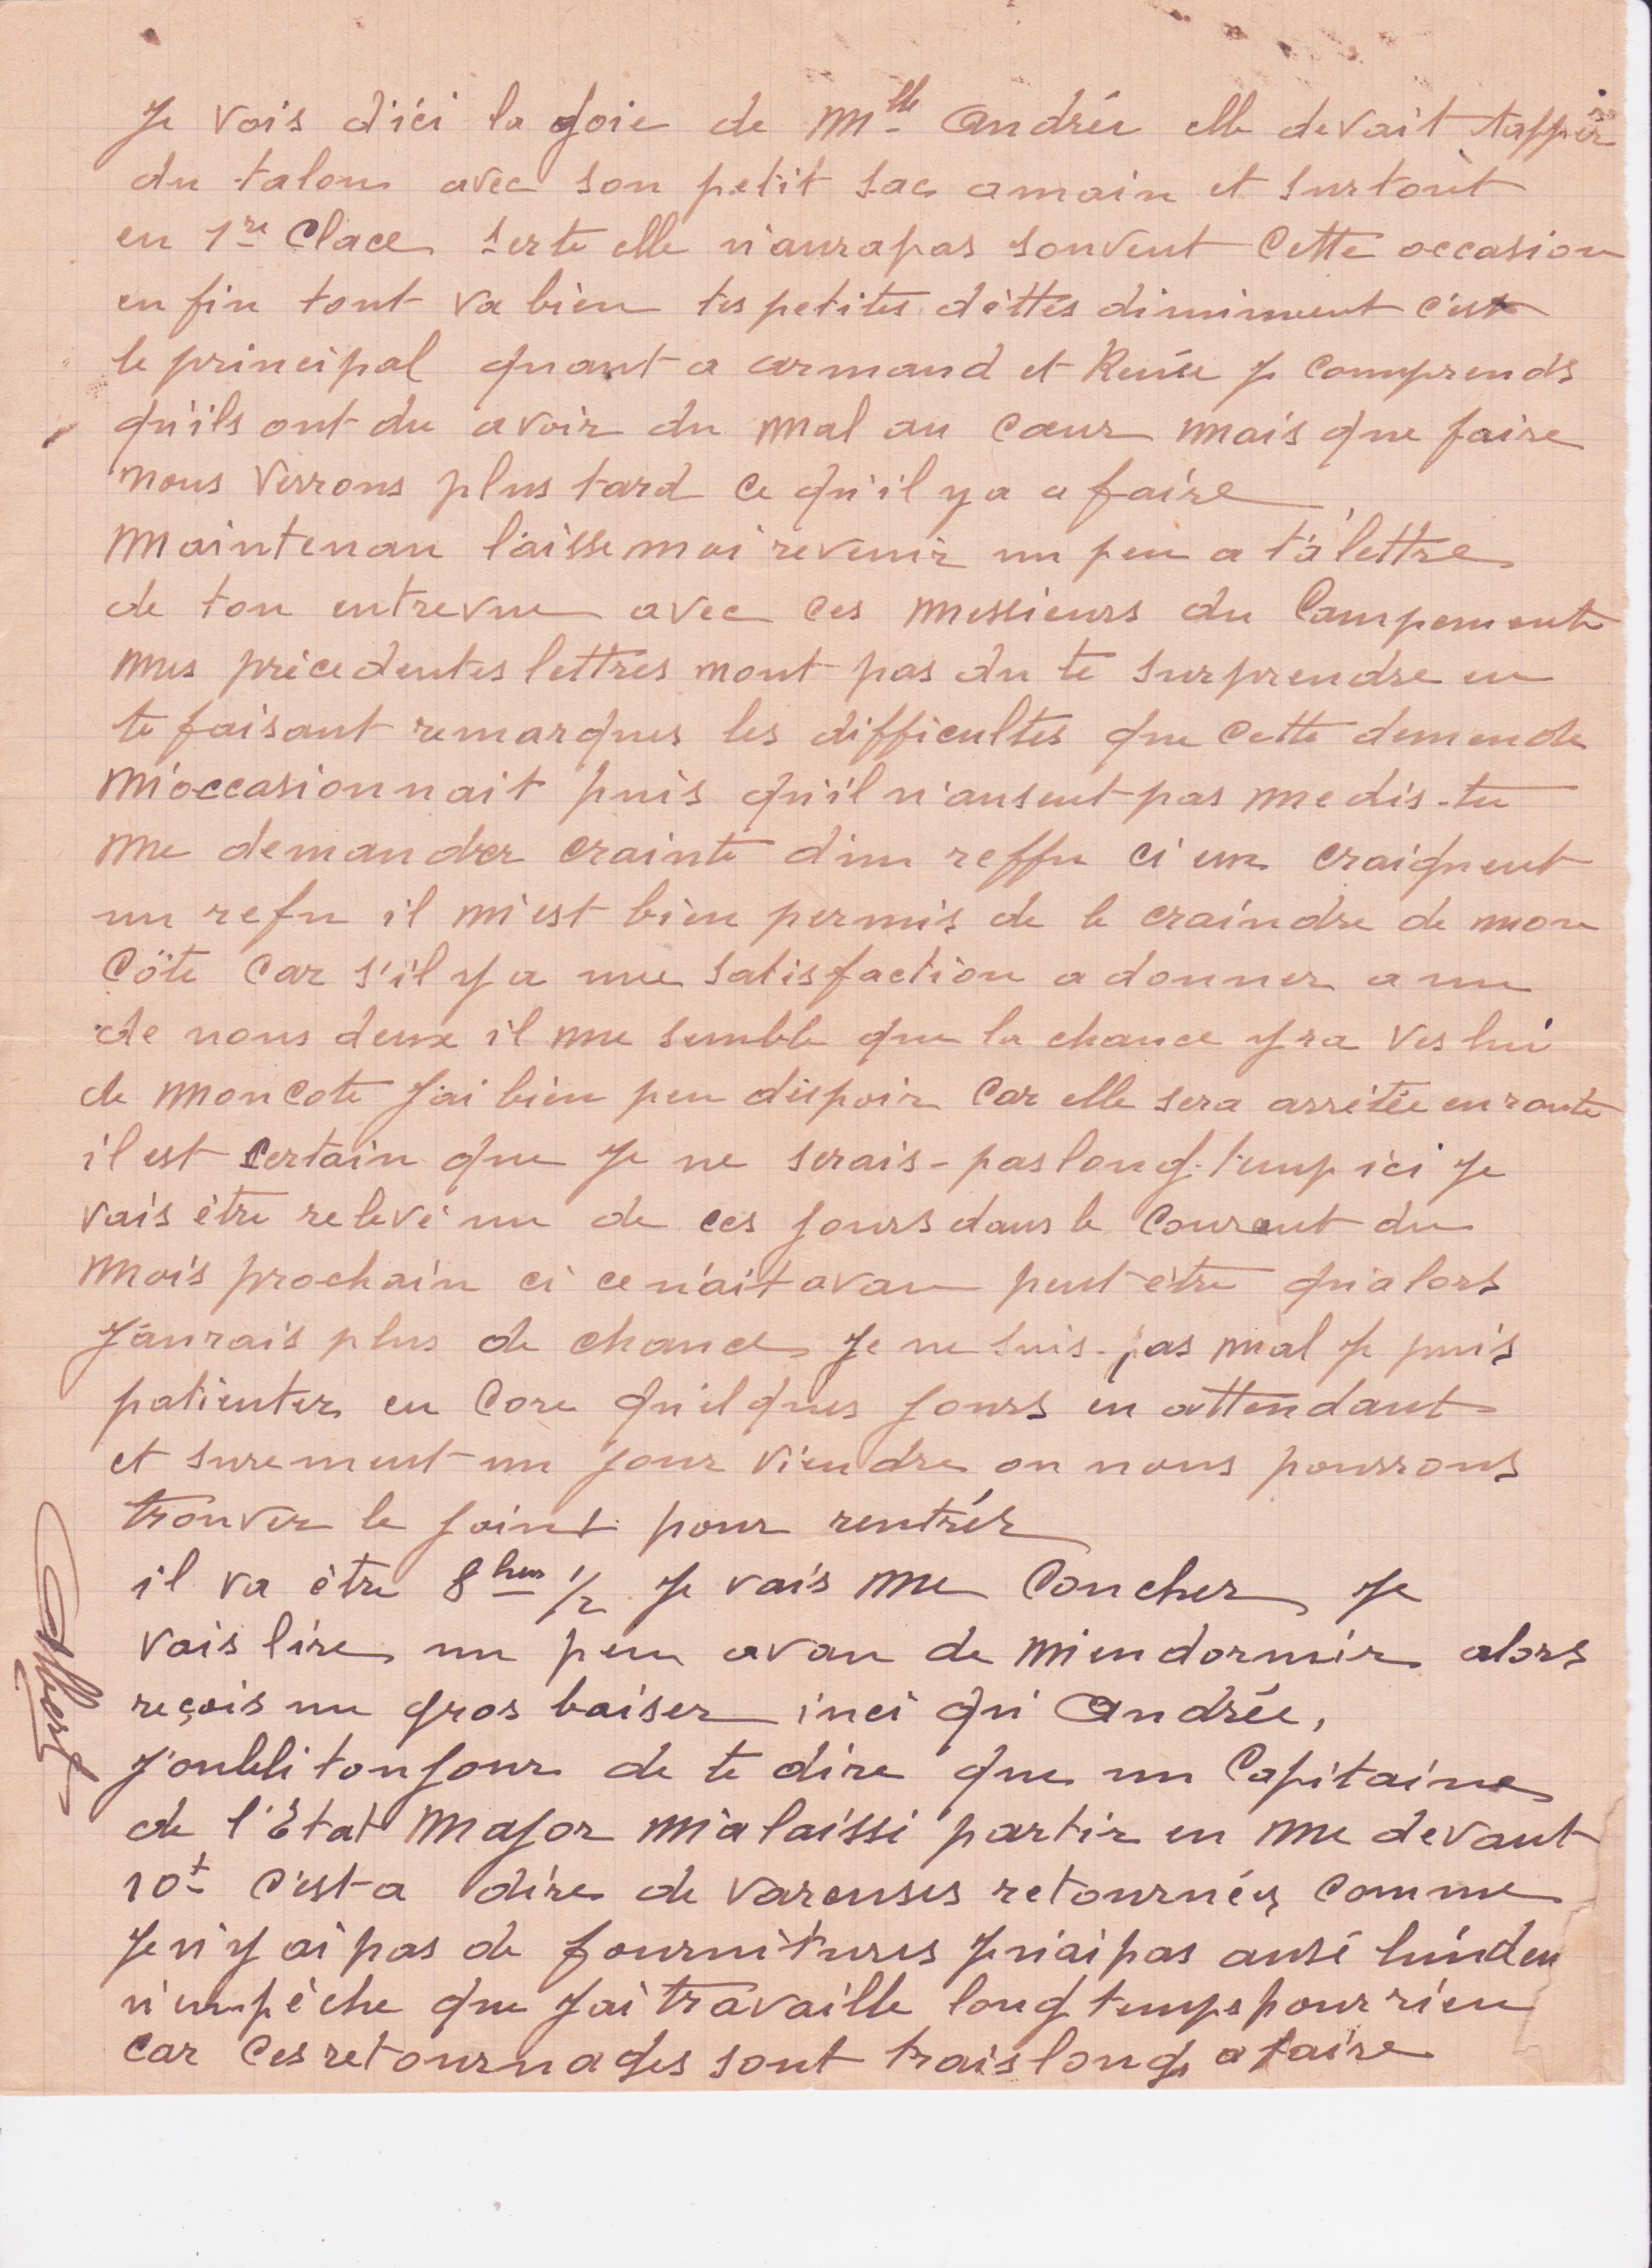 Je vois d'ici la joie de Mlle Andrée elle devait tapper
du talon avec son petit sac amain et surtout
en 1re Clace serte elle n'aurapas souvent cette occasion
en fin tout va bien tes petites dèttes diminuent c'est
le principal quant a armand et Renée je comprends
qu'ils ont du avoir du mal au cœur mais que faire
nous verrons plus tard ce qu'il y a a faire
Maintenan laisse moi revenir un peu a ta lettre
de ton entrevue avec ces messieurs du Campement
mes précedentes lettres n'ont pas du te surprendre en
te faisant remarques les difficultes que cette demende
m'occasionnait puis qu'il n'ausent pas me dis-tu
me demander crainte d'un reffu ci eux craignent
un refu il m'est bien permis de le craindre de mon
Côte car s'il y a une satisfaction a donner a un
de nous deux il me semble que la chance yra ves lui
de moncote j'ai bien peu déspoir car elle sera arrétée enroute
il est certain que je ne serais-pas long-temp ici je
vais être relevé un de ces jours dans le courent du
Mois prochain ci ce n'ait avan peut être qu'alors
J'aurais plus de chance je ne suis-pas mal je puis
patienter en core quelques jours en attendant
et surement un jour viendra ou nous pourrons
trouver le joint pour rentrér
il va être 8hes 1/2 je vais me coucher je
vais lire un peu avan de m'endormir alors
reçois un gros baiser inci qu'Andrée,
j'oubli toujour de te dire que un Capitaine
de l'État Major m'a laissé partir en me devant
10t c'est-a dire de vareuses retournées comme
Je n'y ai pas de fournitures je n'ai pas ausé
n'empêche que j'ai travaille long temps pour rien
car ces retournages sont trais long a faire
Albert